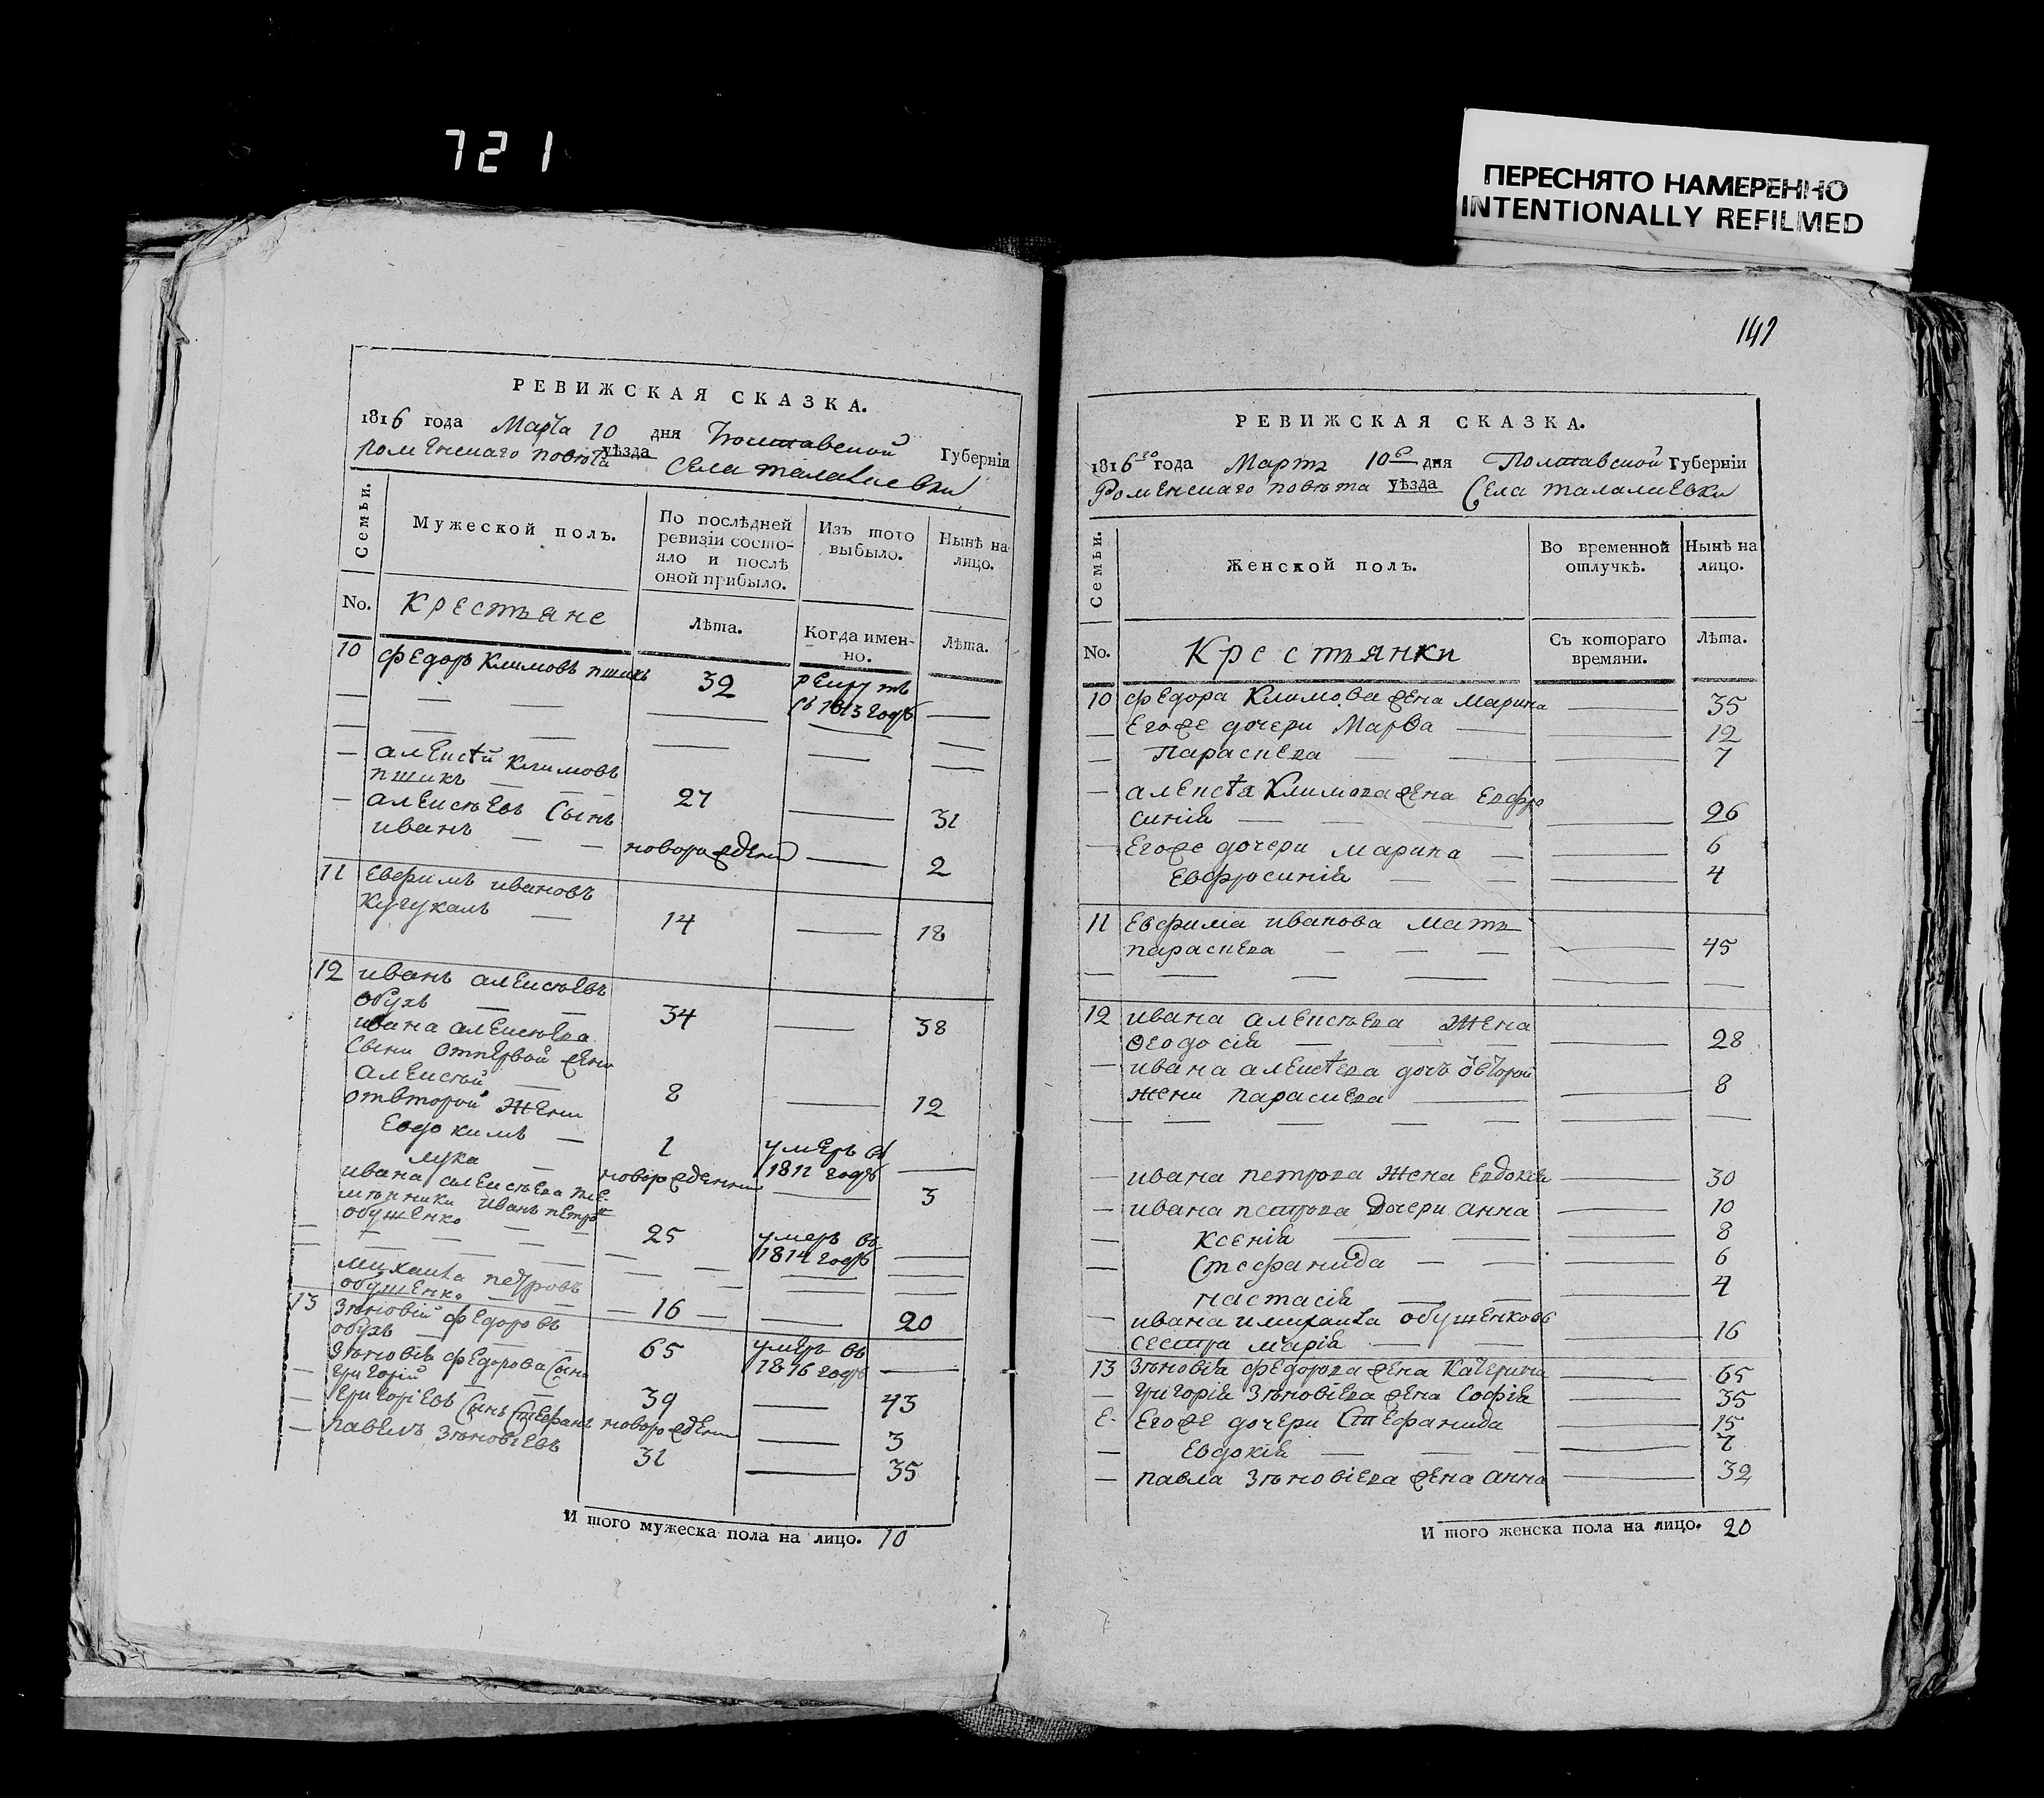 721
ПЕРЕСНЯТО НАМЕРЕННО
INTENTIONALLY REFILMED
РЕВИЖСКАЯ СКАЗКА.
1816 года Марта 10 дня Полтавской Губерніи
роменскаго повѣта уѣзда Села талалаевки
Семьи.
Мужеской полъ.
По послѣдней ревизіи состо-
яло и послѣ
оной прибыло.
Изъ того
выбыло.
Нынѣ на
лицо.
No. Крестьяне Лѣта. Когда имен-
но. Лѣта.
10 федоръ Климовъ пшикъ 32 рекрутъ
съ 1813 годѣ —
— алексѣй Климовъ
пшикъ — — 27 — 31
— алексѣевъ Сынъ
иванъ — — новорожденъ — 2
11 Евфимъ ивановъ
Кугукалъ — 14 — 18
12 иванъ алексѣевъ
обухъ — — 34 — 38
ивана алексѣева
Сыни отпервой жени
алексѣй — 8 — 12
отвторой жени
Евдокимъ — 1 умеръ въ
1812 годѣ —
лука — новорожденни — 3
ивана алексѣева пле-
мѣнники иванъ петро
обушенко — — 25 умеръ въ
1814 годѣ —
михаила петровъ
обушенко — — 16 — — 20
13 Зѣновій федоровъ
обухъ — — 65 умеръ въ
1816 годѣ —
Зѣновія федорова Сынъ
григорій — — 39 — 43
— григоріевъ Сынъ Стефанъ новорожденъ — 3
— павелъ Зѣновіевъ 31 — 35
И того мужеска пола на лицо. 10
141
РЕВИЖСКАЯ СКАЗКА.
1816го года Мартъ 10 дня Полтавской Губерніи
Роменскаго повѣта уѣзда Села талалаевки
Семьи.
Женской полъ.
Во временной
отлучкѣ.
Нынѣ на
лицо.
No. Крестьянки Съ котораго
времяни. Лѣта.
10 федора Климова жена марина — 35
— Егоже дочери Марѳа — — 12
— Параскева — — — 7
— алексѣя Климова жена Евфро
синія — — — — 26
— Егоже дочери марина — — 6
Евфросинія — — — 4
11 Евфиміа иванова мать
параскева — — — — 45
12 ивана алексѣева жена
Ѳеодосія — — — — 28
— ивана алексѣева дочъ ѿвторой
жени параскева — — 8
— ивана петрова жена Евдокія — 30
— ивана петрова дочери анна — 10
— Ксенія — — — 8
— Стефанида — — — 6
настасія — — 4
— ивана и михаила обушенковъ
сестра марія — — — 16
13 Зѣновія федорова жена Катерина — 65
— григорія Зѣновіева жена Софія — 35
Е. Егоже дочери Стефанида — 15
— Евдокія — — — — 7
— павла Зѣновіева жена анна — 32
И того женска пола на лицо. 20